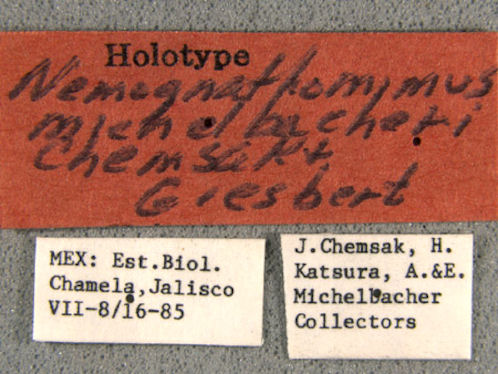 Holotype
Nemognathomimus
michelbacheri
Chemsak &
Giesbert
MEX: Est.Biol.
Chamela,Jalisco
VII-8/16-85
J.Chemsak, H.
Katsura, A.&E.
Michelbacher
Collectors